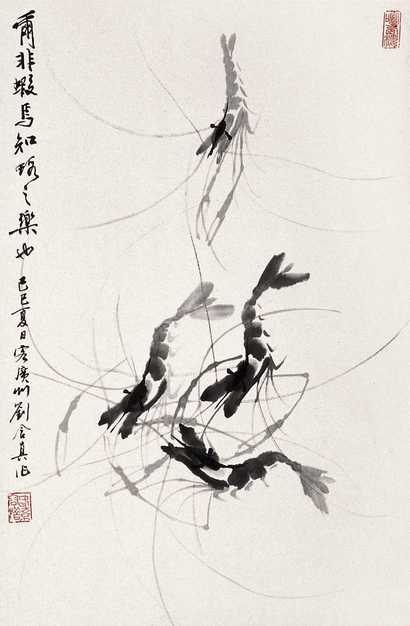 爾非蝦焉知蝦之樂也 己巳夏日客廣州劉含真作